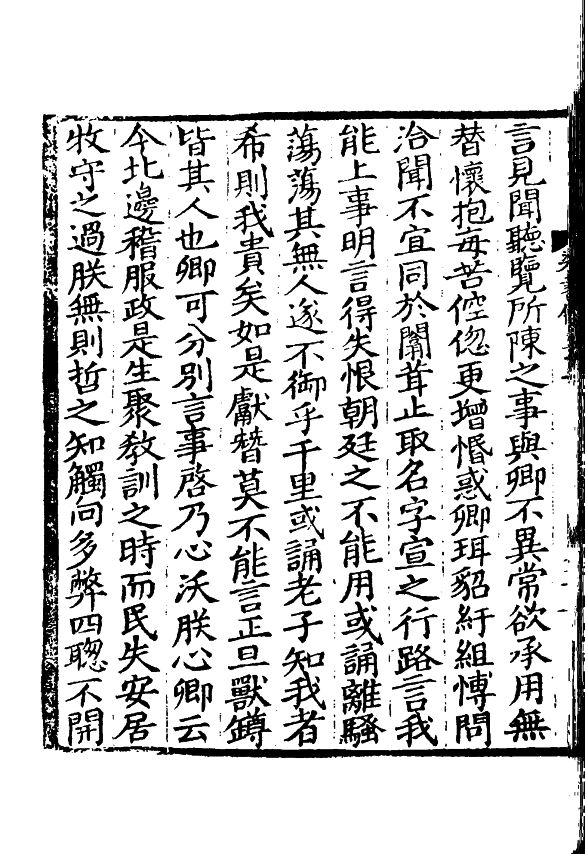 言見聞聽覽所陳之事與卿不異常欲承用無
替懷抱每苦倥偬更增惛惑卿珥貂紆組愽問
洽聞不宜同於闒茸止取名字宣之行路言我
能上事明言得失恨朝廷之不能用或誦離騷
蕩蕩其無人遂不御乎千里或誦老子知我者
希則我貴矣如是獻替莫不能言正旦獸罇
皆其人也卿可分別言事啓乃心沃朕心卿云
今北邊稽服政是生聚教訓之時而民失安居
牧守之過朕無則哲之知觸向多弊四聰不開